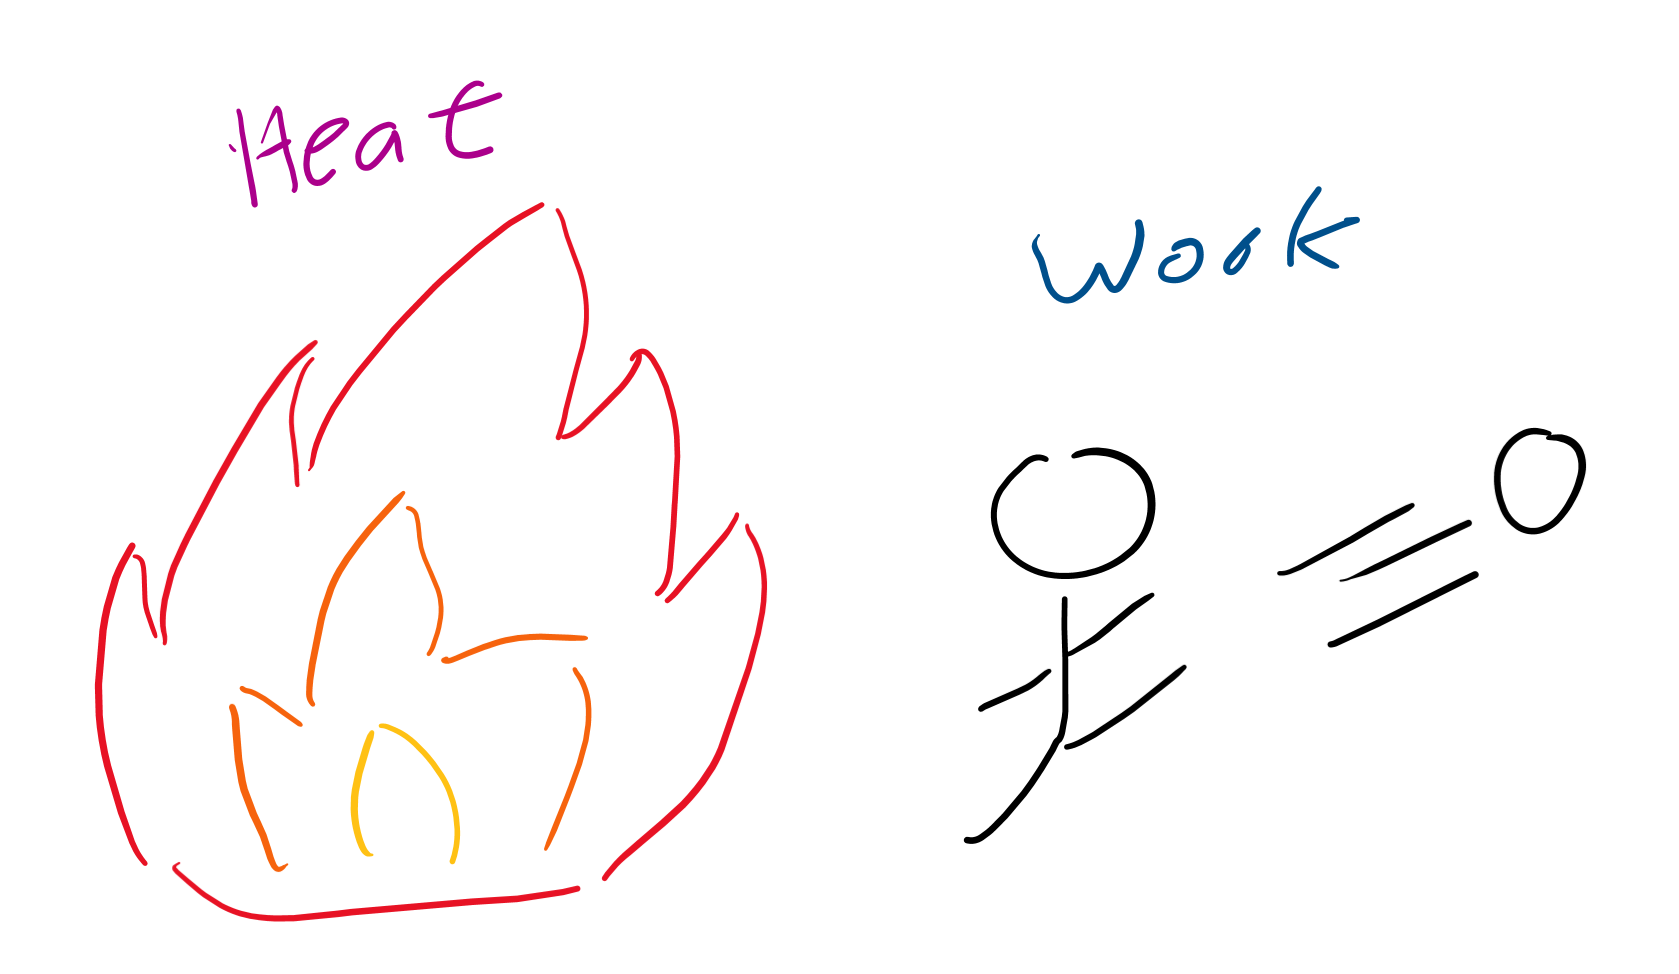 Heat
Work